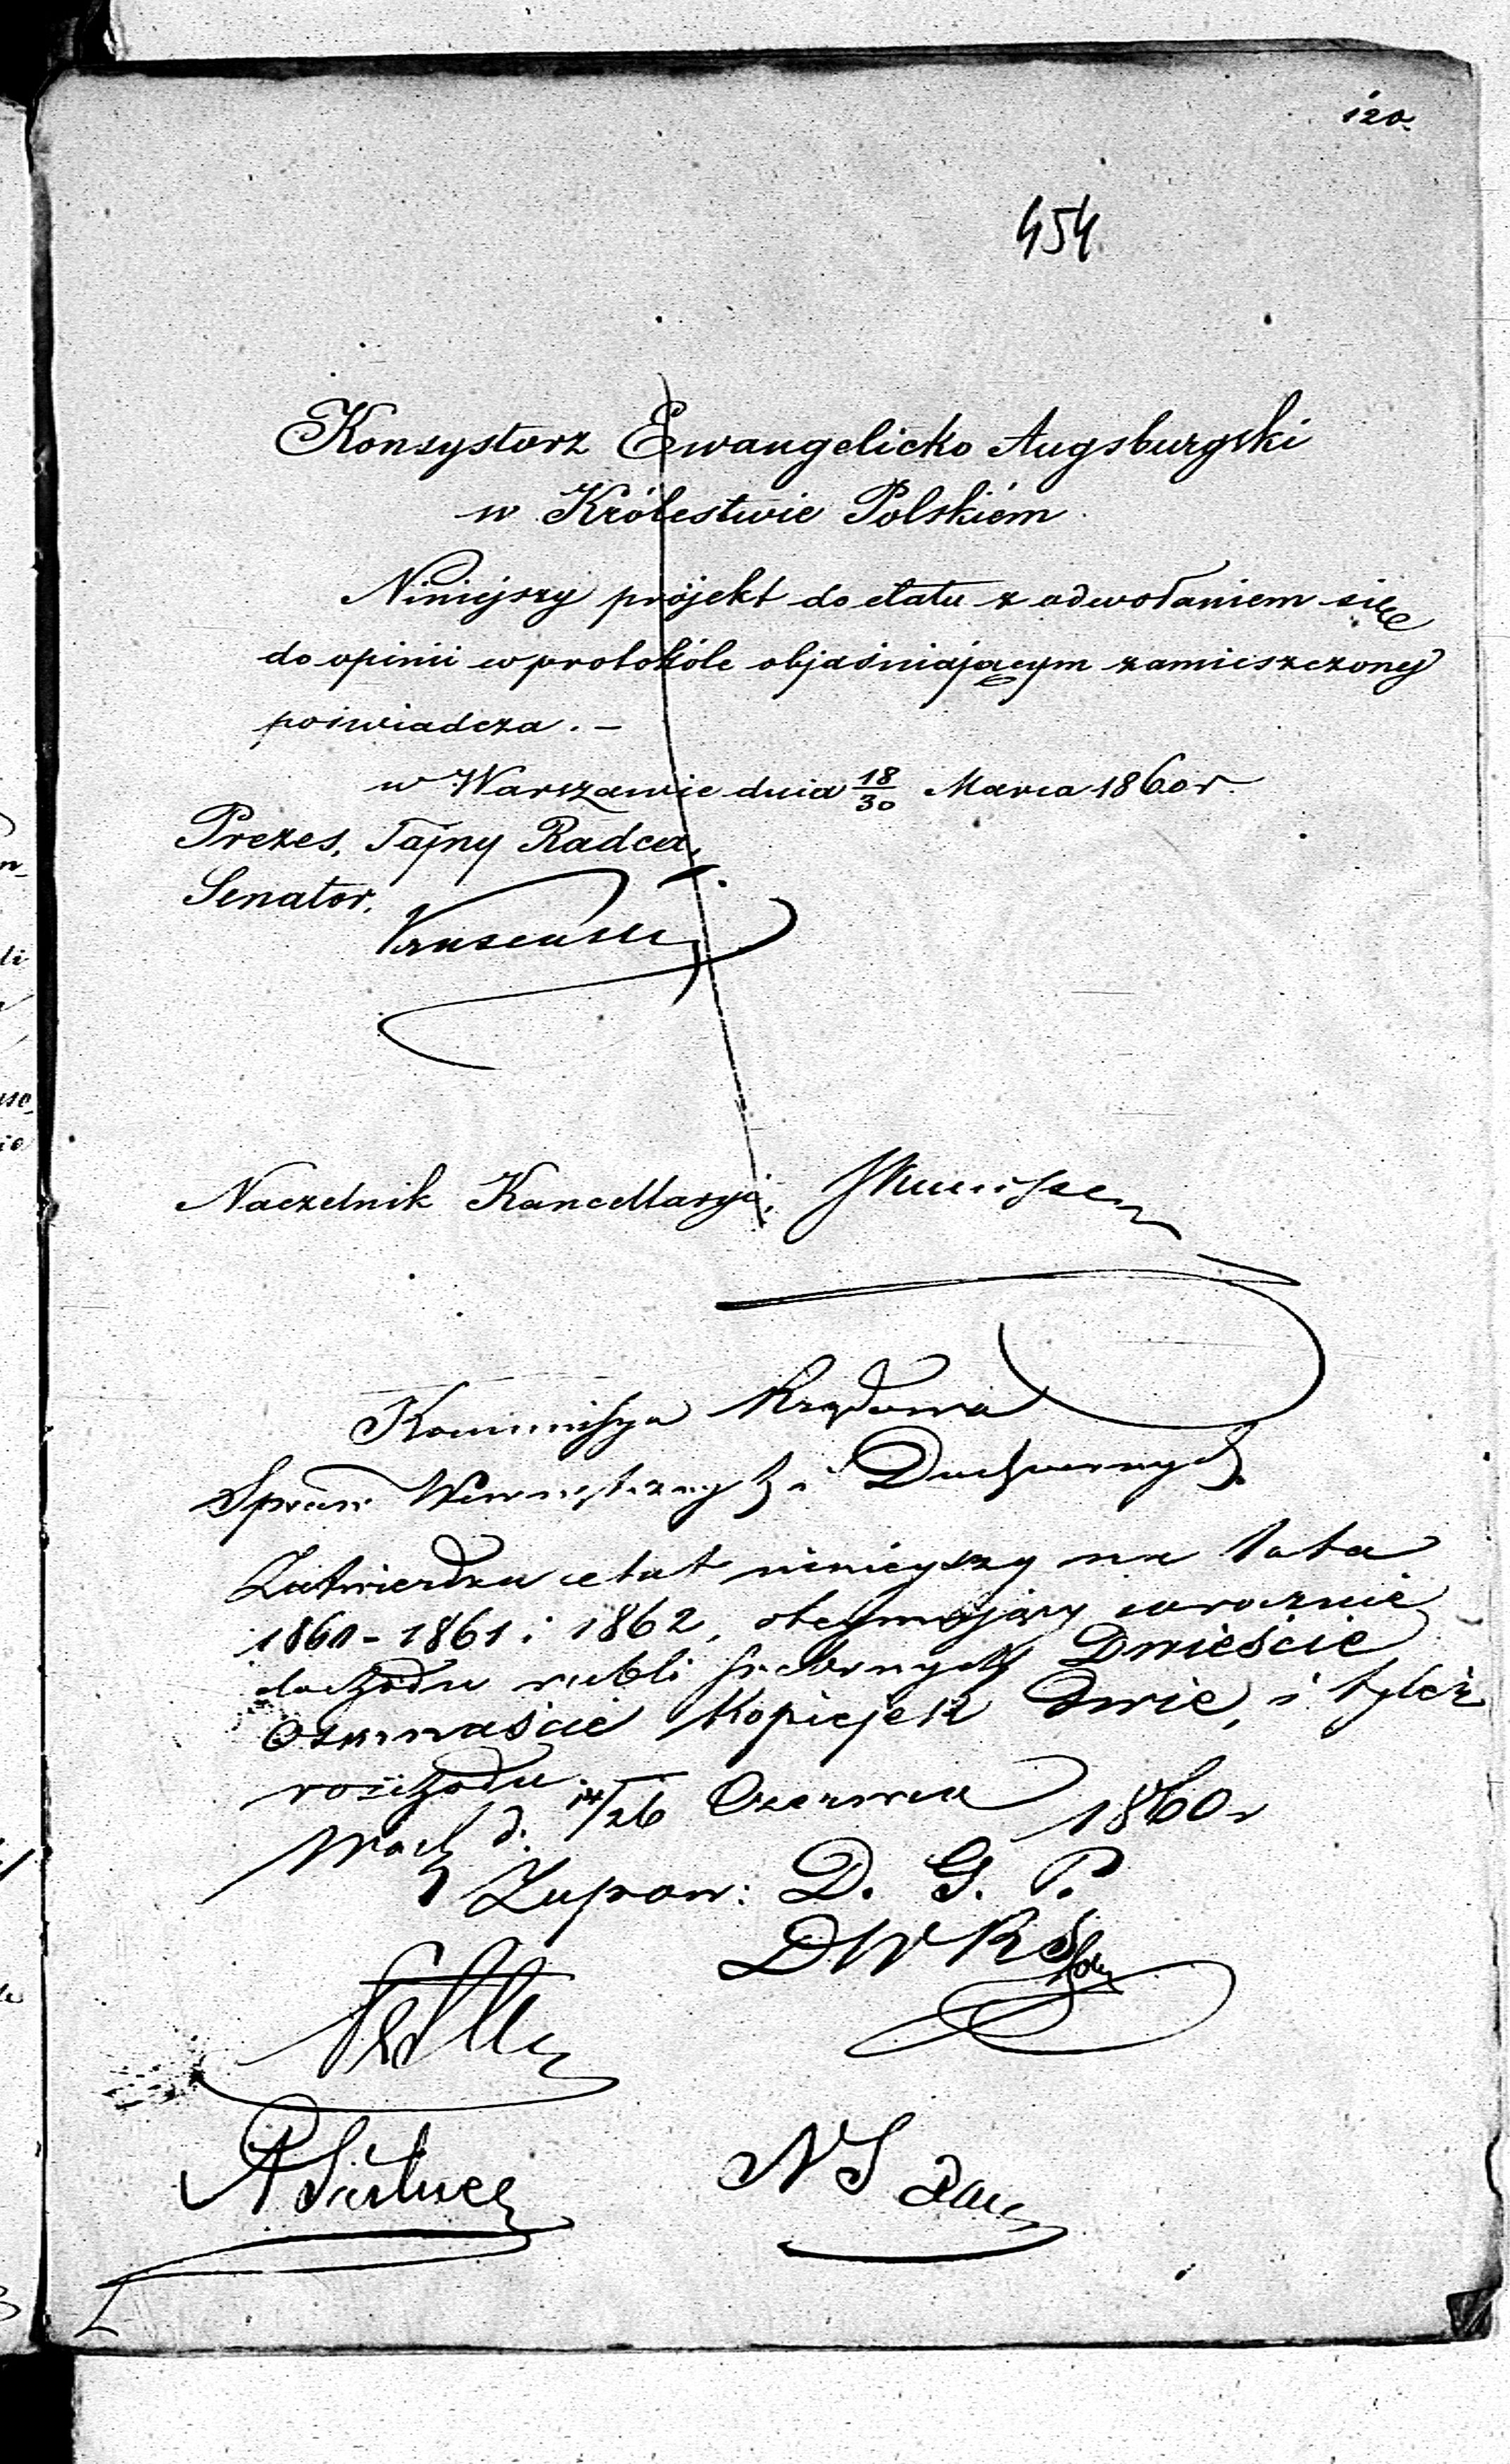 120.
454
Konsystorz Ewangelicko Augsburgski
w Królestwie Polskiém.
Niniejszy projekt do etatu z odwołaniem się
do opinii w protokóle objaśniającym zamieszczonej
poświadcza. –
w Warszawie dnia 18/30 Marca 1860 r.
Prezes, Tajny Radca,
Senator,
Naczelnik Kancellaryi,
Kommissya Rządowa
Spraw Wewnętrznych i Duchownych
Zatwierdza etat niniejszy na lata
1860 - 1861 i 1862, obejmujący corocznie
dochodu rubli srebrnych Dwieście
Osmnaście Kopiejek Dwie, i tyleż
rozchodu.
d. 14/26 Czerwca 1860 r
Z upow: D. G. P.
DW R
NS